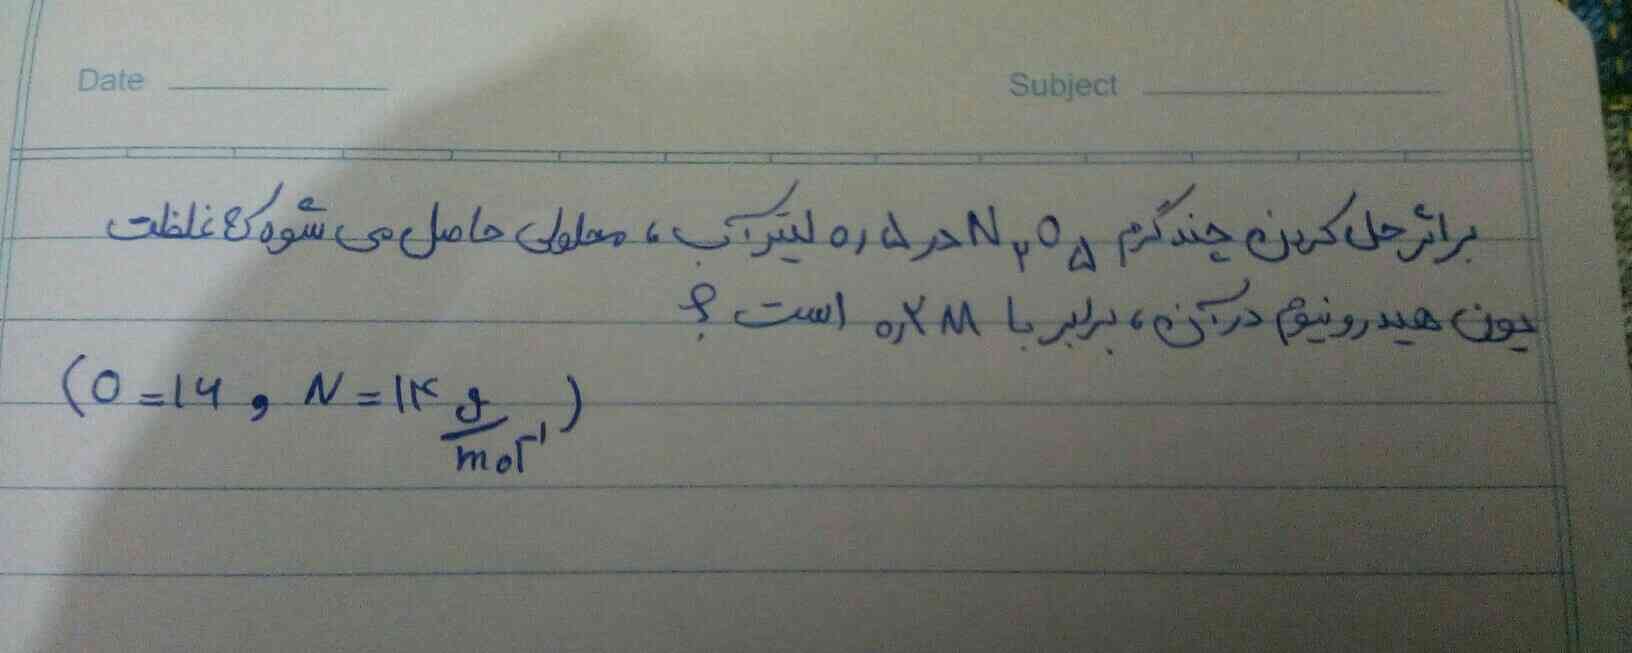 Date Subject
براثر حل کردن چند گرم N۲O۵ در ۰٫۵ لیتر آب، محلولی حاصل می شود که غلظت
یون هیدرونیوم در آن، برابر با ۰٫۲M است؟
(O=۱۶ , N=۱۴ g/mol⁻¹)